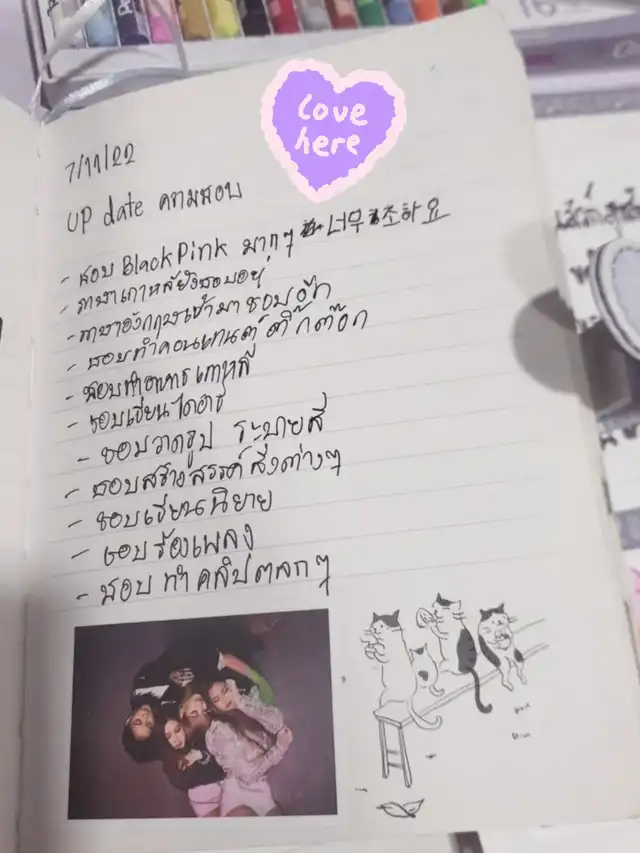 Love
here
7/11/22
UP date ความชอบ
- ชอบ BlackPink มากๆ 너무 조하요
- ภาษาเกาหลียังชอบอยู่
- ภาษาอังกฤษเข้ามาชอบอีก
- ชอบทำคอนเทนต์ ติ๊กต๊อก
- ชอบทำอาหารเกาหลี
- ชอบเขียนไดอารี่
- ชอบวาดรูป ระบายสี
- ชอบสร้างสรรค์สิ่งต่างๆ
- ชอบเขียนนิยาย
- ชอบร้องเพลง
- ชอบ ทำคลิปตลกๆ